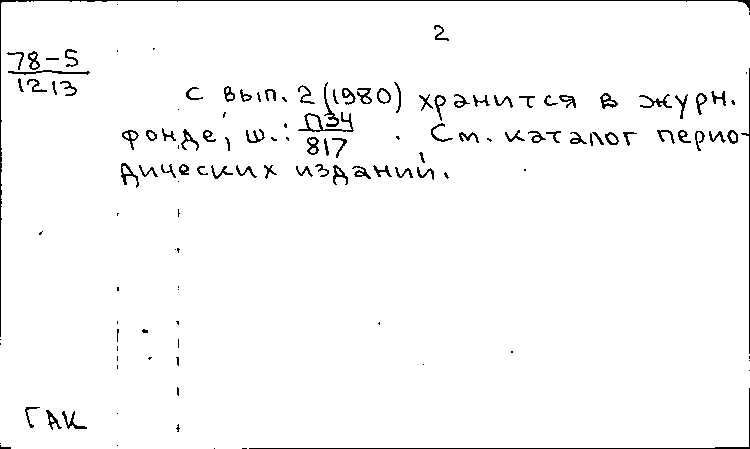 2
78-5
1213
с вып. 2 (1980) хранится в журн.
фонде, ш.: П34/817 . См. каталог перио-
дических изданий.
ГАК